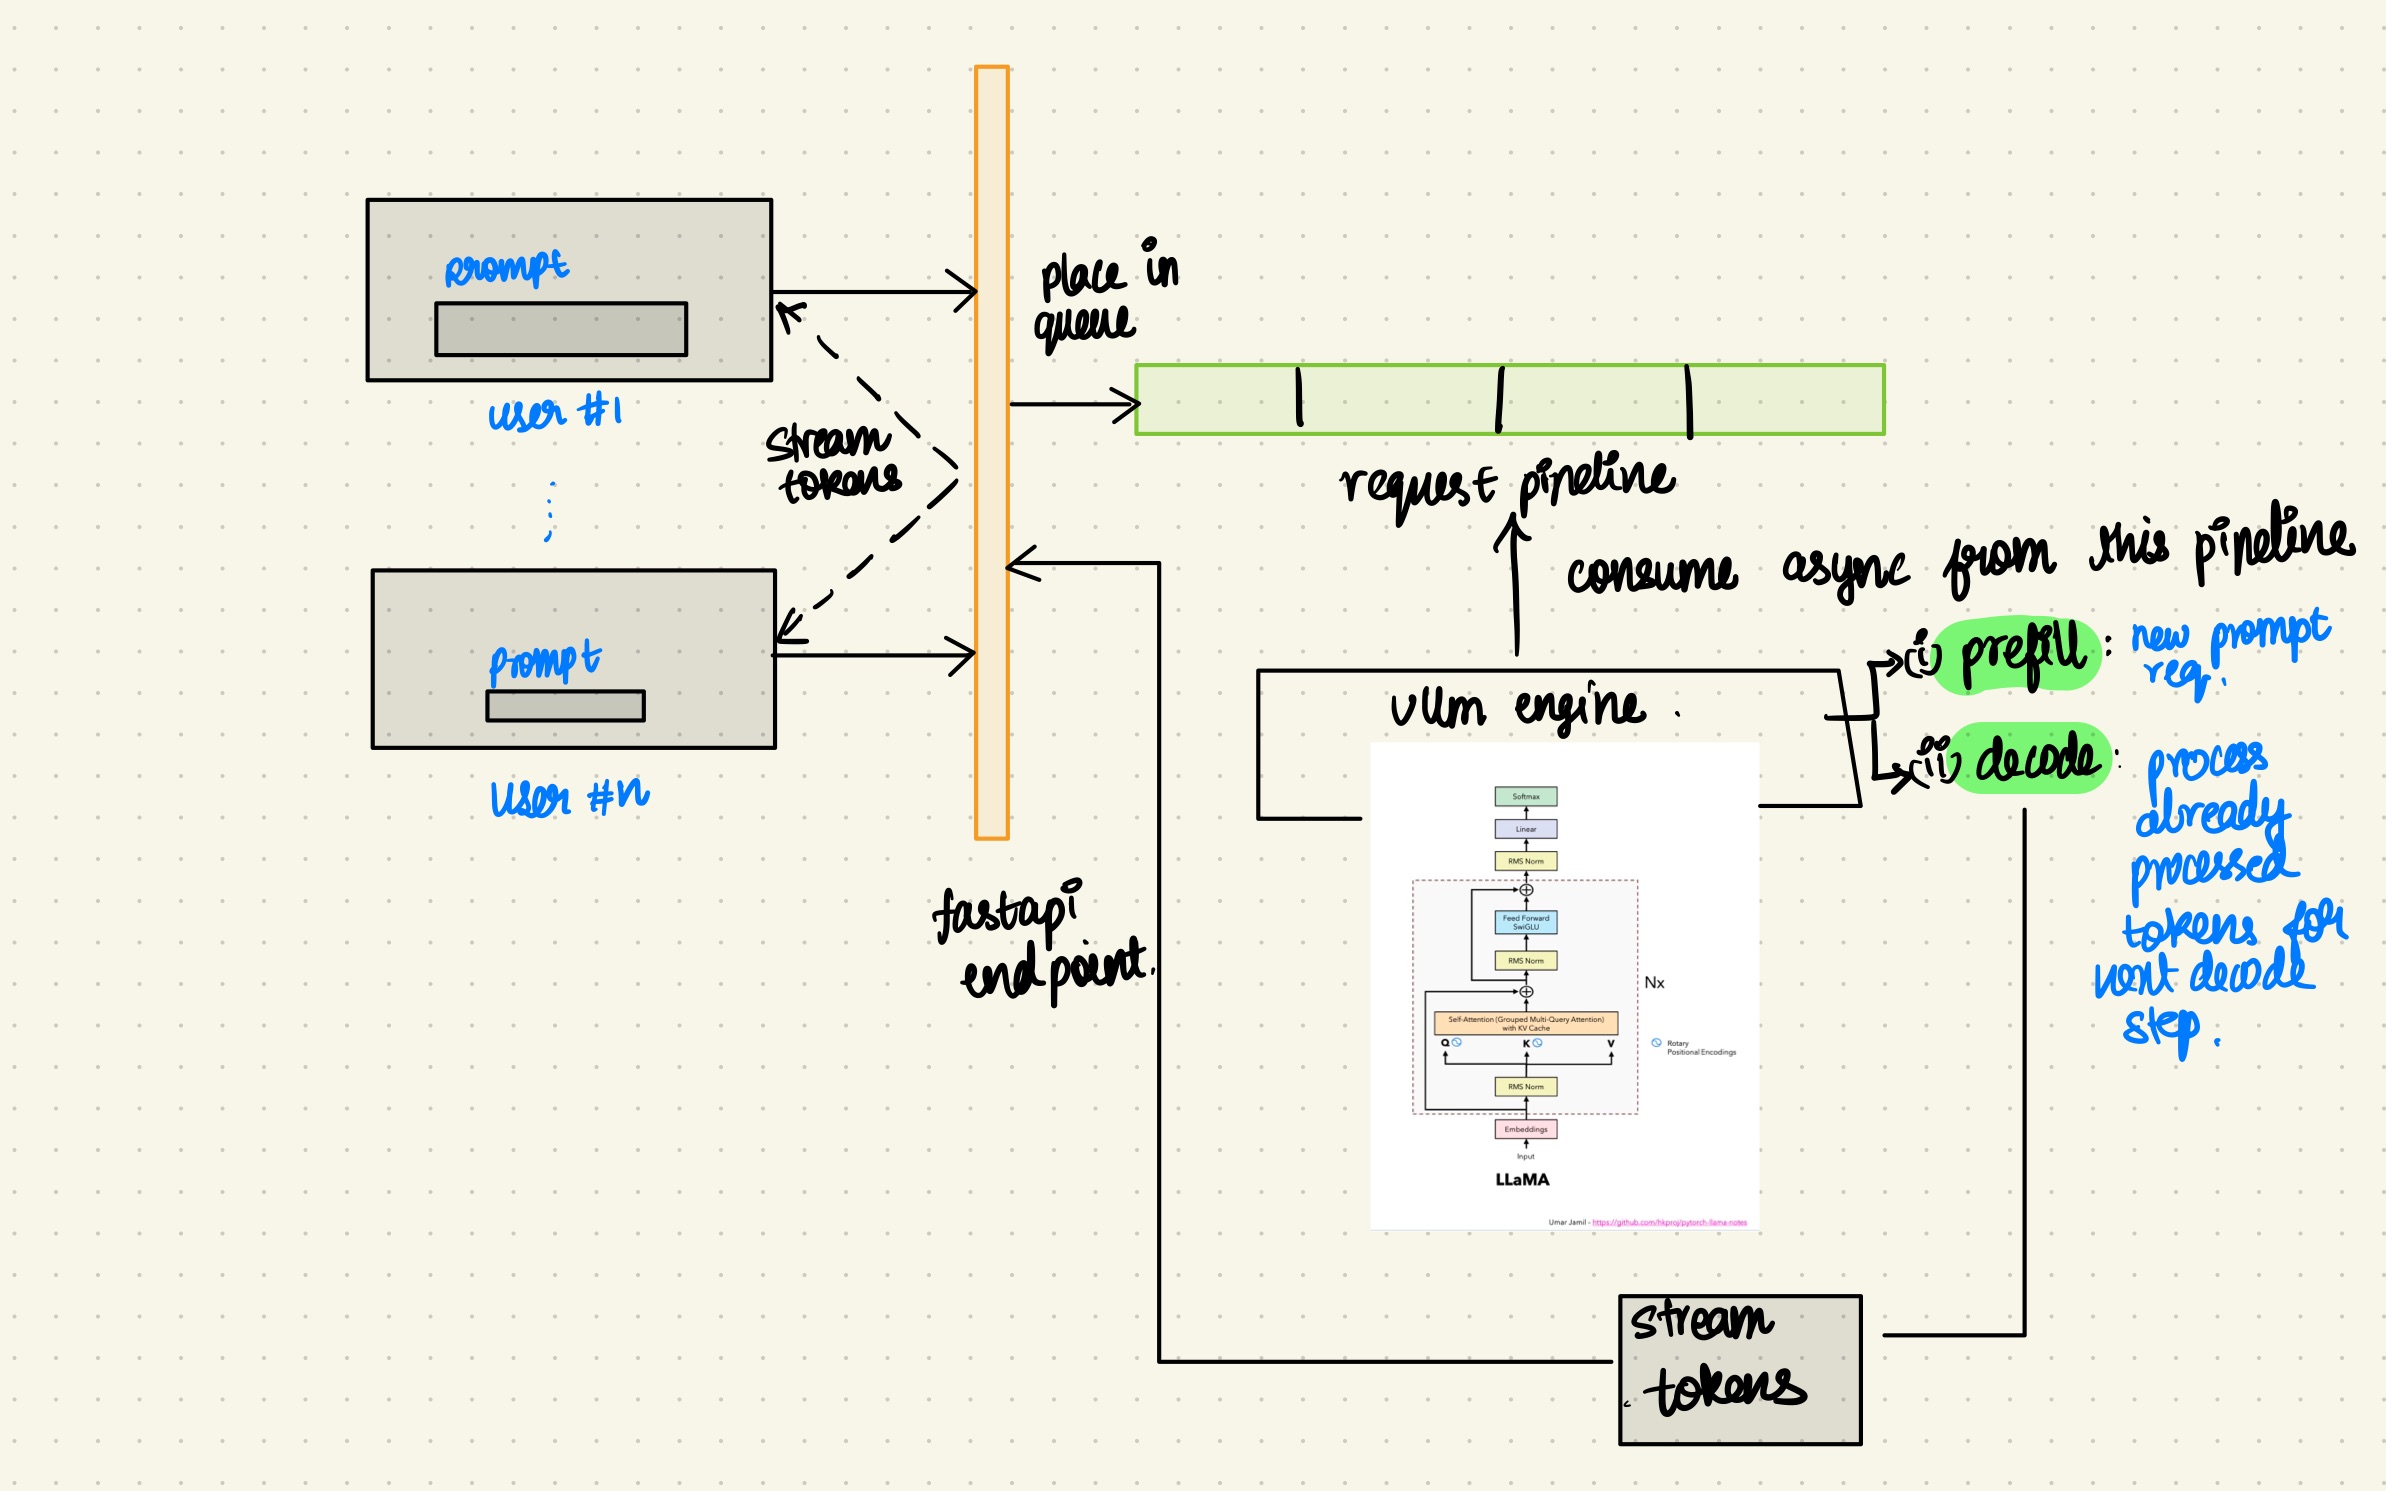 prompt
user #1
stream
tokens
prompt
user #n
place in
queue
request pipeline
consume async from this pipeline
fastapi
endpoint.
vllm engine.
(i) prefill: new prompt
req.
(ii) decode: process
already
processed
tokens for
next decode
step.
Softmax
Linear
RMS Norm
Feed Forward
SwiGLU
RMS Norm
Nx
Self-Attention (Grouped Multi-Query Attention)
with KV Cache
Q K V
Rotary
Positional Encodings
RMS Norm
Embeddings
Input
LLaMA
Umar Jamil - https://github.com/hkproj/pytorch-llama-notes
stream
tokens